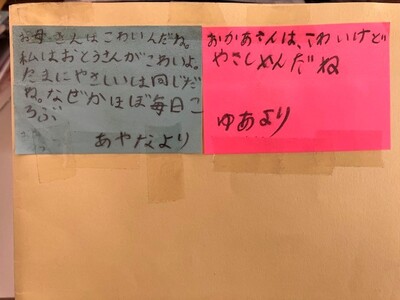 お母さんはこわいんだね。
私はおとうさんがこわいよ。
たまにやさしいは同じだ
ね。なぜかほぼ毎日こ
ろぶ
あやなより
おかあさんは、こわいけど
やさしいんだね
ゆあより